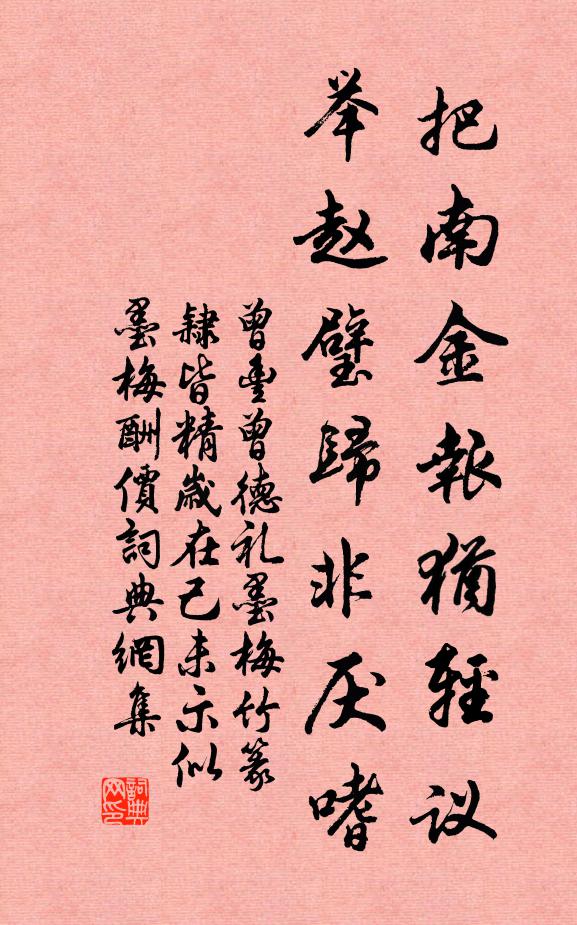 把南金報犹輕议
举赵璧歸非厌嗜
曾豊曾德礼墨梅竹篆
隸皆精歲在已未示似
墨梅酬價詞典網集
詞典网印